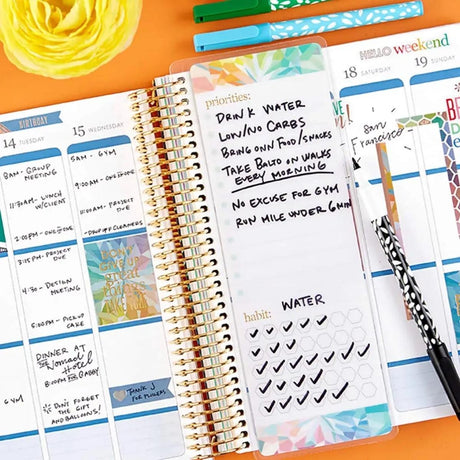 BIRTHDAY
14 TUESDAY
9AM - GROUP
MEETING
11:30AM - LUNCH
W/CLIENT
2:00PM - 1:1 @ ONE
3:15PM - PROJECT
DUE
4:30 - DESIGN
MEETING
6:00PM - PICK UP
CAKE
DINNER AT
THE Nomad
Hotel
8:00PM FOR GABBY
6 YM
DON'T FORGET
THE GIFT
AND BALLOONS!
15 WEDNESDAY
5AM - GYM
9:00AM -
11:00AM - PROJECT
DUE
DROP OFF CLEANERS
THANK J
FOR FLOWERS
priorities:
DRINK WATER
LOW/NO CARBS
BRING OWN FOOD/SNACKS
TAKE BALTO ON WALKS
EVERY MORNING
NO EXCUSE FOR GYM
RUN MILE UNDER 6 MIN
habit:
WATER
HELLO weekend
18 SATURDAY
San
Francisco
19 SUN